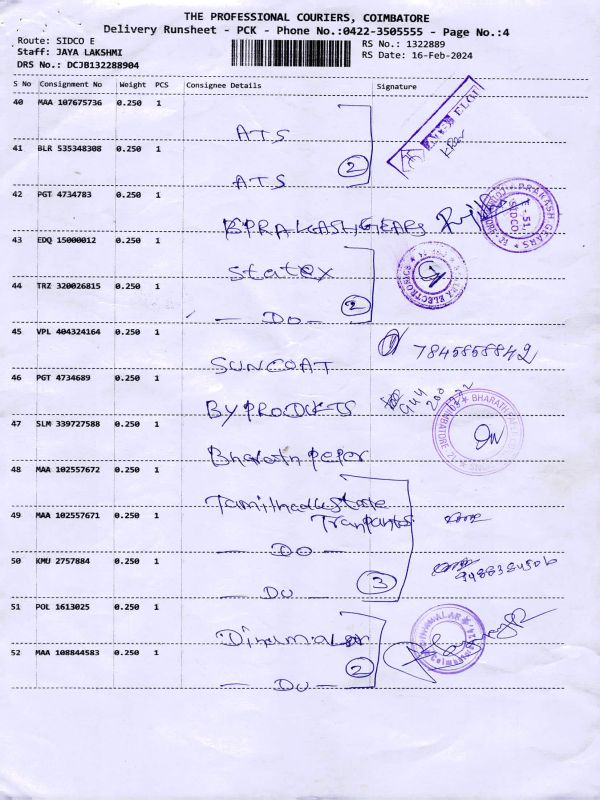 THE PROFESSIONAL COURIERS, COIMBATORE
Delivery Runsheet - PCK - Phone No.:0422-3505555 - Page No.:4
Route: SIDCO E
RS No.: 1322889
Staff: JAYA LAKSHMI
RS Date: 16-Feb-2024
DRS No.: DCJB132288904
S No Consignment No Weight PCS Consignee Details Signature
40 MAA 107675736 0.250 1
ATS
41 BLR 535348308 0.250 1
2
ATS
42 PGT 4734783 0.250 1
43 EDQ 15000012 0.250 1
Statex
44 TRZ 320026815 0.250 1
2
— DO —
45 VPL 404324164 0.250 1
7845858842
SUNCOAT
46 PGT 4734689 0.250 1
BYPRODUCTS
47 SLM 339727588 0.250 1
Bharath peper
48 MAA 102557672 0.250 1
Tamilnadu state
49 MAA 102557671 0.250 1
— DO —
50 KMU 2757884 0.250 1
3
— DO —
51 POL 1613025 0.250 1
Dinamalar
52 MAA 108844583 0.250 1
2
— DO —